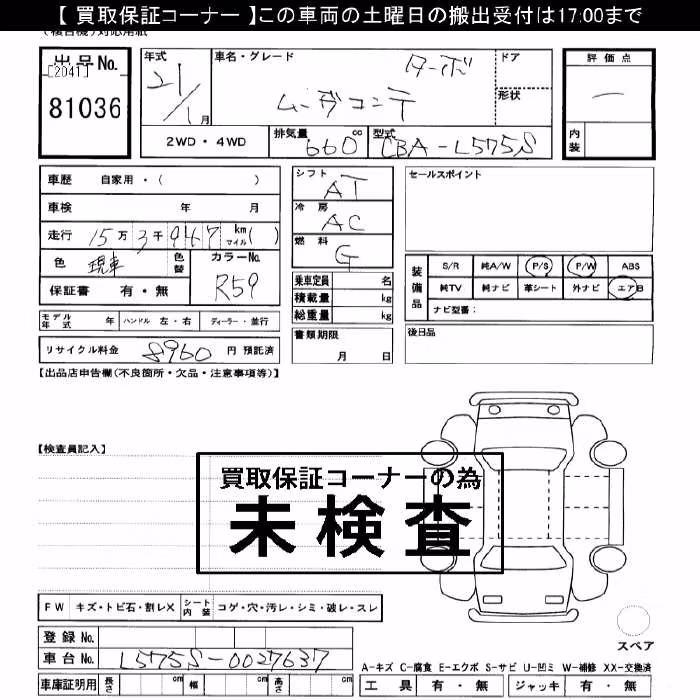 【 買取保証コーナー 】この車両の土曜日の搬出受付は17:00まで
(複合機)対応用紙
出品No.
[2041]
81036
年式
21/1月
車名・グレード
ターボ
ムーヴコンテ
ドア
形状
評価点
内装
2WD・4WD
排気量 660 cc
型式 CBA-L575S
車歴 自家用・( )
車検 年 月
走行 15万3千947 km マイル( )
色 現車 色替
カラーNo. R59
保証書 有・無
モデル年式 年 ハンドル 左・右 ディーラー・並行
リサイクル料金 8960 円 預託済
シフト AT
冷房 AC
燃料 G
乗車定員 名
積載量 kg
総重量 kg
書類期限
月 日
セールスポイント
装備品
S/R 純A/W P/S P/W ABS
純TV 純ナビ 革シート 外ナビ エアB
ナビ型番:
後日品
【出品店申告欄(不良箇所・欠品・注意事項等)】
【検査員記入】
買取保証コーナーの為
未検査
FW キズ・トビ石・割レX シート内装 コゲ・穴・汚レ・シミ・破レ・スレ
登録No.
車台No. L575S-0027637
車庫証明用 長さ cm 幅 cm 高さ cm
スペア
A-キズ C-腐食 E-エクボ S-サビ U-凹ミ W-補修 XX-交換済
工具 有・無 ジャッキ 有・無